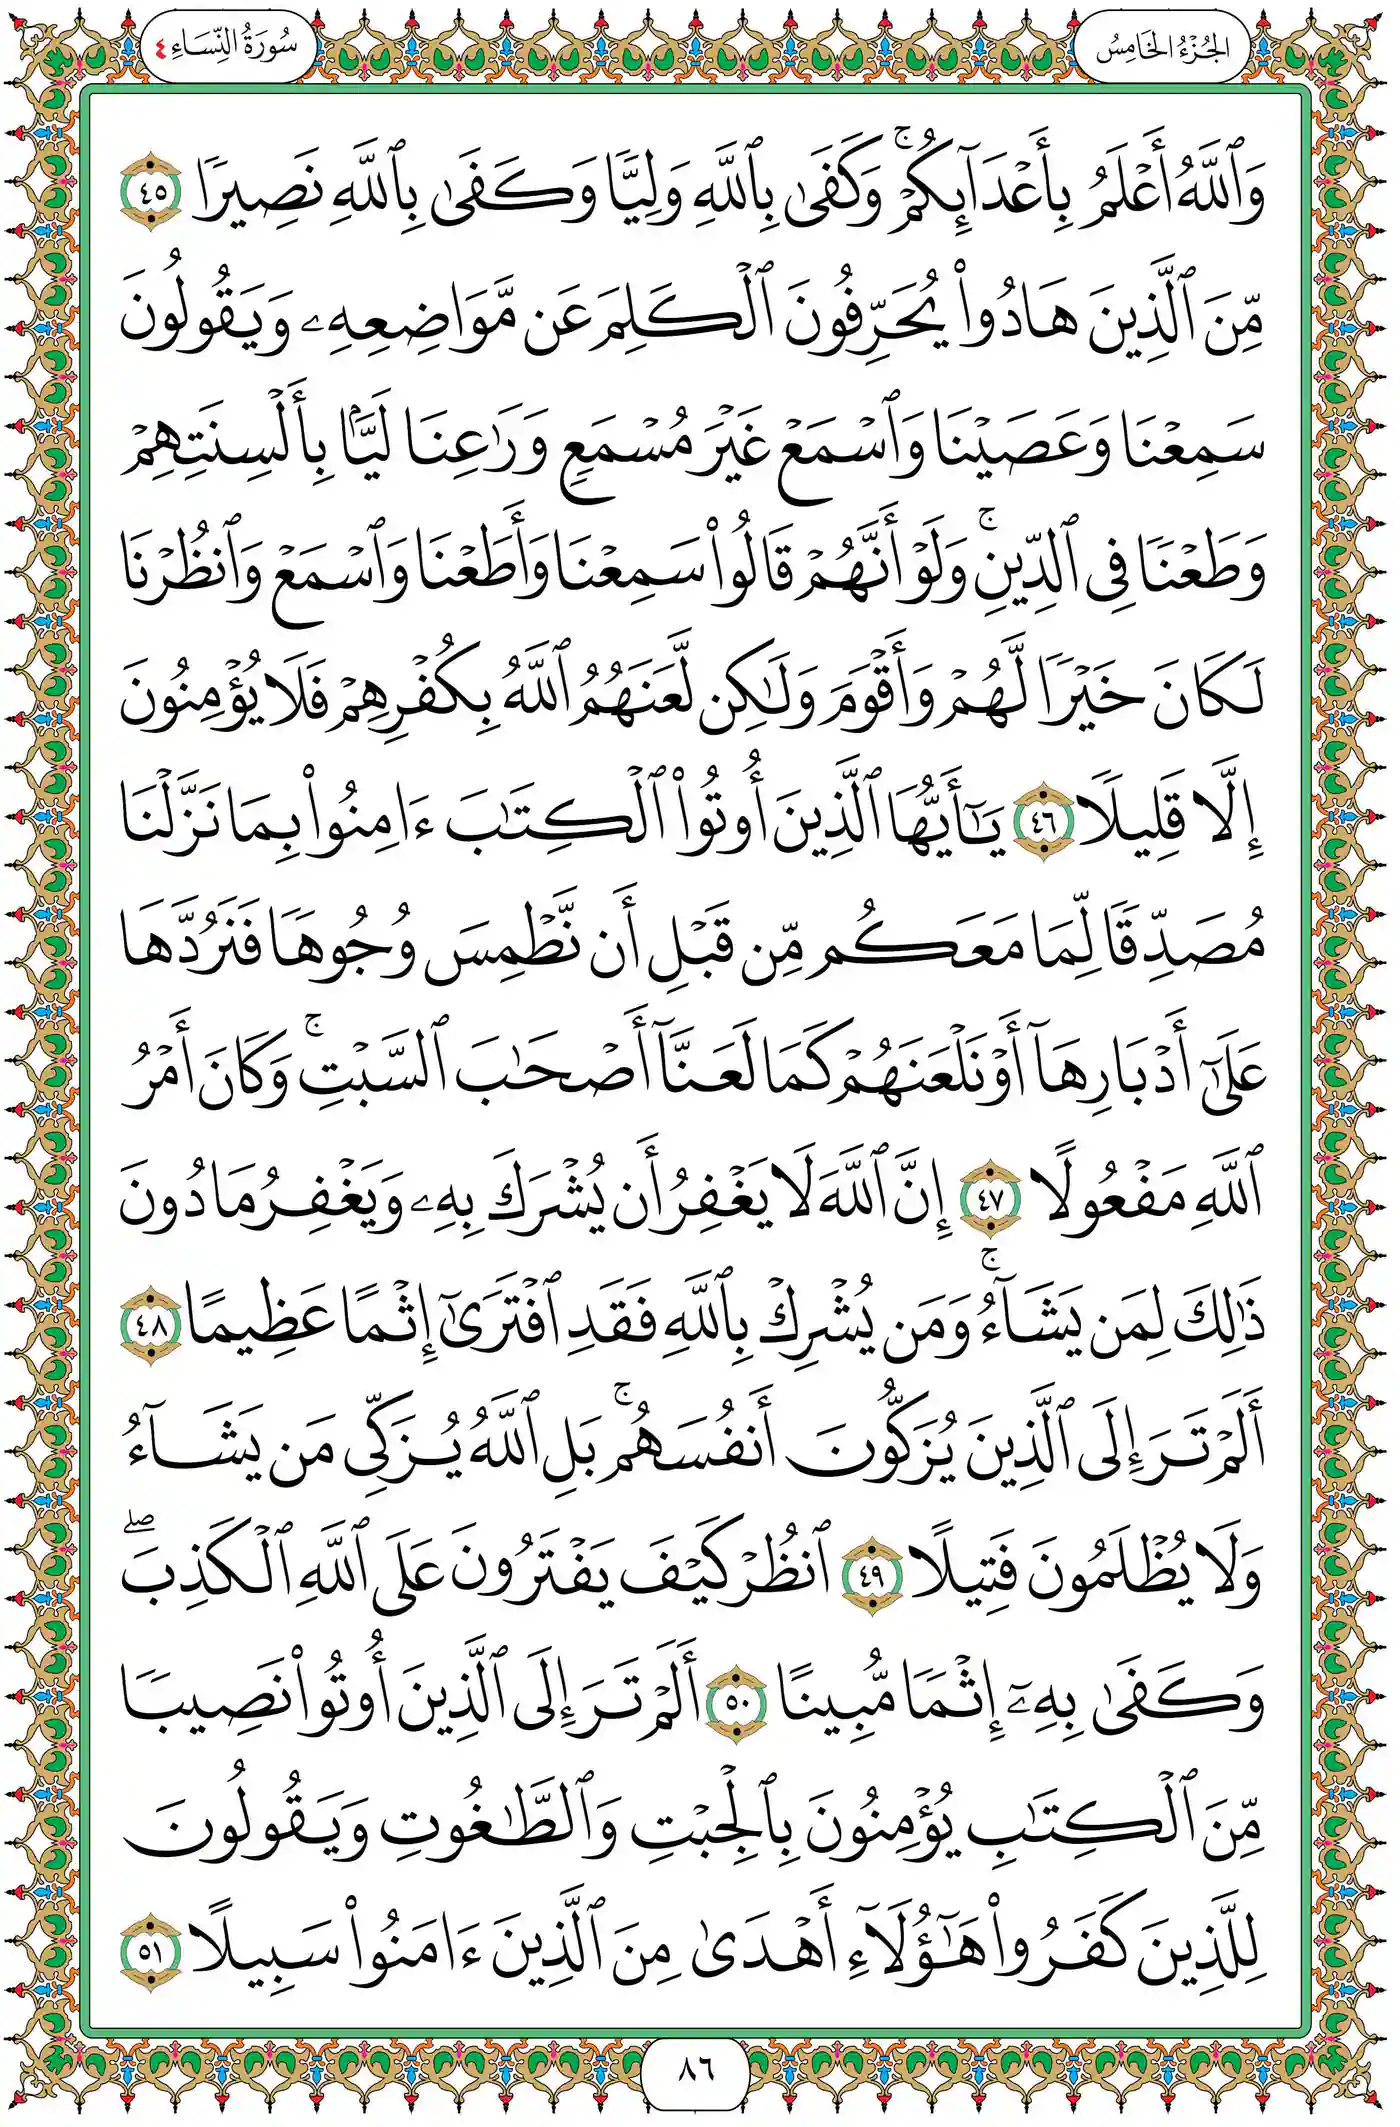 الجُزْءُ الخَامِسُ
سُورَةُ النِّسَاءِ ٤
وَٱللَّهُ أَعْلَمُ بِأَعْدَآئِكُمْۚ وَكَفَىٰ بِٱللَّهِ وَلِيًّا وَكَفَىٰ بِٱللَّهِ نَصِيرًا ٤٥
مِّنَ ٱلَّذِينَ هَادُواْ يُحَرِّفُونَ ٱلْكَلِمَ عَن مَّوَاضِعِهِۦ وَيَقُولُونَ
سَمِعْنَا وَعَصَيْنَا وَٱسْمَعْ غَيْرَ مُسْمَعٍ وَرَٰعِنَا لَيًّۢا بِأَلْسِنَتِهِمْ
وَطَعْنًا فِى ٱلدِّينِۚ وَلَوْ أَنَّهُمْ قَالُواْ سَمِعْنَا وَأَطَعْنَا وَٱسْمَعْ وَٱنظُرْنَا
لَكَانَ خَيْرًا لَّهُمْ وَأَقْوَمَ وَلَٰكِن لَّعَنَهُمُ ٱللَّهُ بِكُفْرِهِمْ فَلَا يُؤْمِنُونَ
إِلَّا قَلِيلًا ٤٦ يَٰٓأَيُّهَا ٱلَّذِينَ أُوتُواْ ٱلْكِتَٰبَ ءَامِنُواْ بِمَا نَزَّلْنَا
مُصَدِّقًا لِّمَا مَعَكُم مِّن قَبْلِ أَن نَّطْمِسَ وُجُوهًا فَنَرُدَّهَا
عَلَىٰٓ أَدْبَارِهَآ أَوْ نَلْعَنَهُمْ كَمَا لَعَنَّآ أَصْحَٰبَ ٱلسَّبْتِۚ وَكَانَ أَمْرُ
ٱللَّهِ مَفْعُولًا ٤٧ إِنَّ ٱللَّهَ لَا يَغْفِرُ أَن يُشْرَكَ بِهِۦ وَيَغْفِرُ مَا دُونَ
ذَٰلِكَ لِمَن يَشَآءُۚ وَمَن يُشْرِكْ بِٱللَّهِ فَقَدِ ٱفْتَرَىٰٓ إِثْمًا عَظِيمًا ٤٨
أَلَمْ تَرَ إِلَى ٱلَّذِينَ يُزَكُّونَ أَنفُسَهُمۚ بَلِ ٱللَّهُ يُزَكِّى مَن يَشَآءُ
وَلَا يُظْلَمُونَ فَتِيلًا ٤٩ ٱنظُرْ كَيْفَ يَفْتَرُونَ عَلَى ٱللَّهِ ٱلْكَذِبَۖ
وَكَفَىٰ بِهِۦٓ إِثْمًا مُّبِينًا ٥٠ أَلَمْ تَرَ إِلَى ٱلَّذِينَ أُوتُواْ نَصِيبًا
مِّنَ ٱلْكِتَٰبِ يُؤْمِنُونَ بِٱلْجِبْتِ وَٱلطَّٰغُوتِ وَيَقُولُونَ
لِلَّذِينَ كَفَرُواْ هَٰٓؤُلَآءِ أَهْدَىٰ مِنَ ٱلَّذِينَ ءَامَنُواْ سَبِيلًا ٥١
٨٦